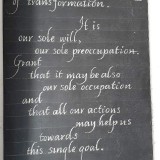 of transformation.
It is
our sole will,
our sole preoccupation.
Grant
that it may be also
our sole occupation
and
that all our actions
may help us
towards
this single goal.